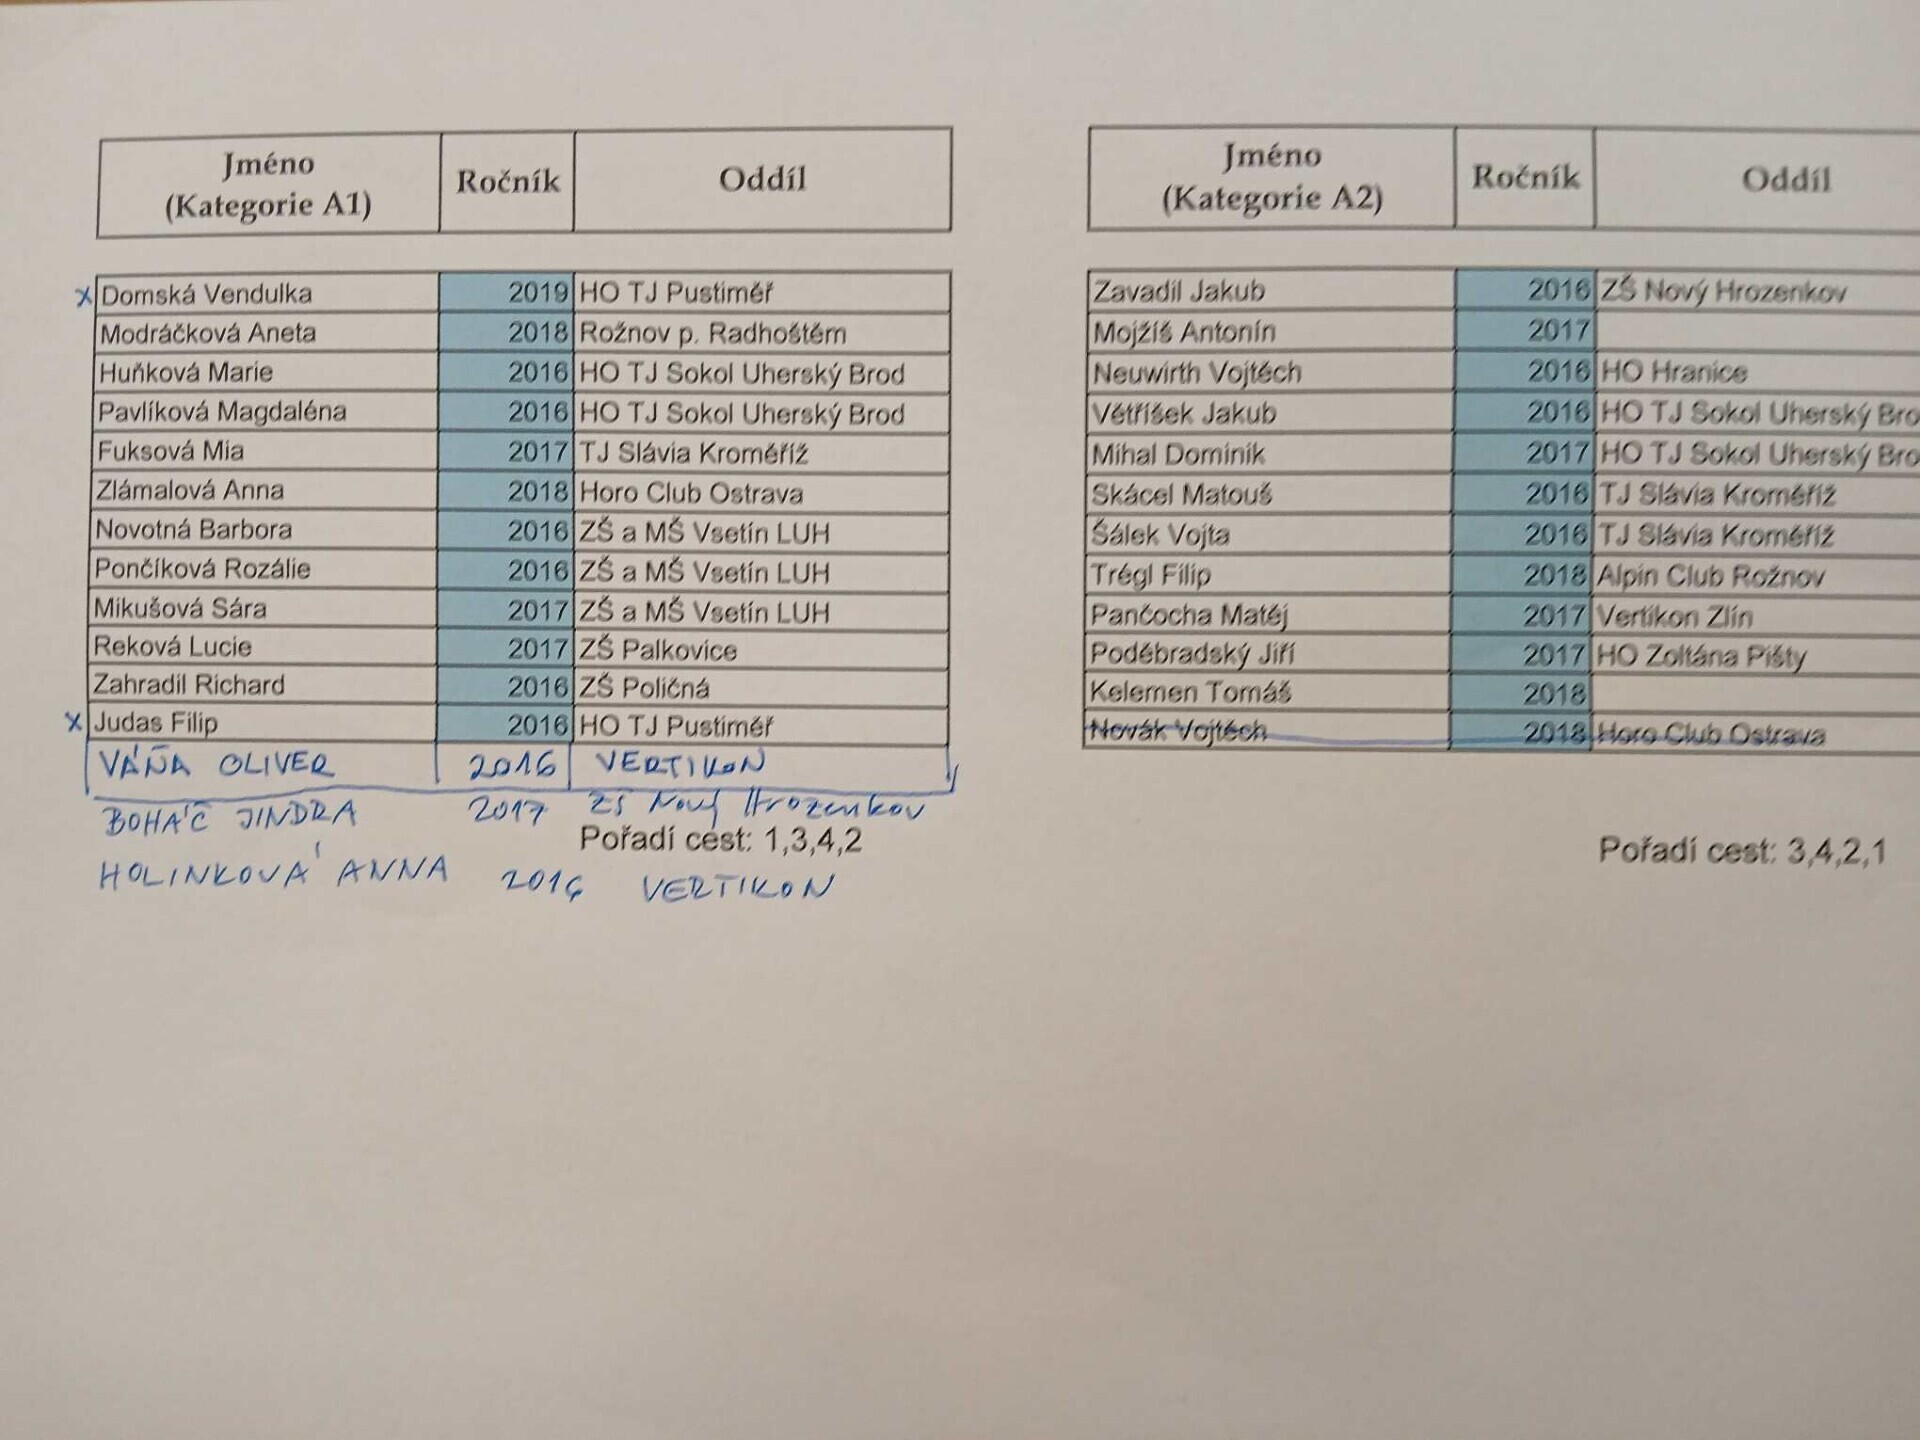 Jméno
(Kategorie A1)
Ročník
Oddíl
x Domská Vendulka 2019 HO TJ Pustiměř
Modráčková Aneta 2018 Rožnov p. Radhoštěm
Huňková Marie 2016 HO TJ Sokol Uherský Brod
Pavlíková Magdaléna 2016 HO TJ Sokol Uherský Brod
Fuksová Mia 2017 TJ Slávia Kroměříž
Zlámalová Anna 2018 Horo Club Ostrava
Novotná Barbora 2016 ZŠ a MŠ Vsetín LUH
Pončíková Rozálie 2016 ZŠ a MŠ Vsetín LUH
Mikušová Sára 2017 ZŠ a MŠ Vsetín LUH
Reková Lucie 2017 ZŠ Palkovice
Zahradil Richard 2016 ZŠ Poličná
x Judas Filip 2016 HO TJ Pustiměř
VÁŇA OLIVER 2016 VERTIKON
BOHÁČ JINDRA 2017 ZŠ Nový Hrozenkov
Pořadí cest: 1,3,4,2
HOLINKOVÁ ANNA 2016 VERTIKON
Jméno
(Kategorie A2)
Ročník
Oddíl
Zavadil Jakub 2016 ZŠ Nový Hrozenkov
Mojžíš Antonín 2017
Neuwirth Vojtěch 2016 HO Hranice
Větříšek Jakub 2016 HO TJ Sokol Uherský Bro
Mihal Dominik 2017 HO TJ Sokol Uherský Bro
Skácel Matouš 2016 TJ Slávia Kroměříž
Šálek Vojta 2016 TJ Slávia Kroměříž
Trégl Filip 2018 Alpin Club Rožnov
Pančocha Matěj 2017 Vertikon Zlín
Poděbradský Jiří 2017 HO Zoltána Pišty
Kelemen Tomáš 2018
Novák Vojtěch 2018 Horo Club Ostrava
Pořadí cest: 3,4,2,1